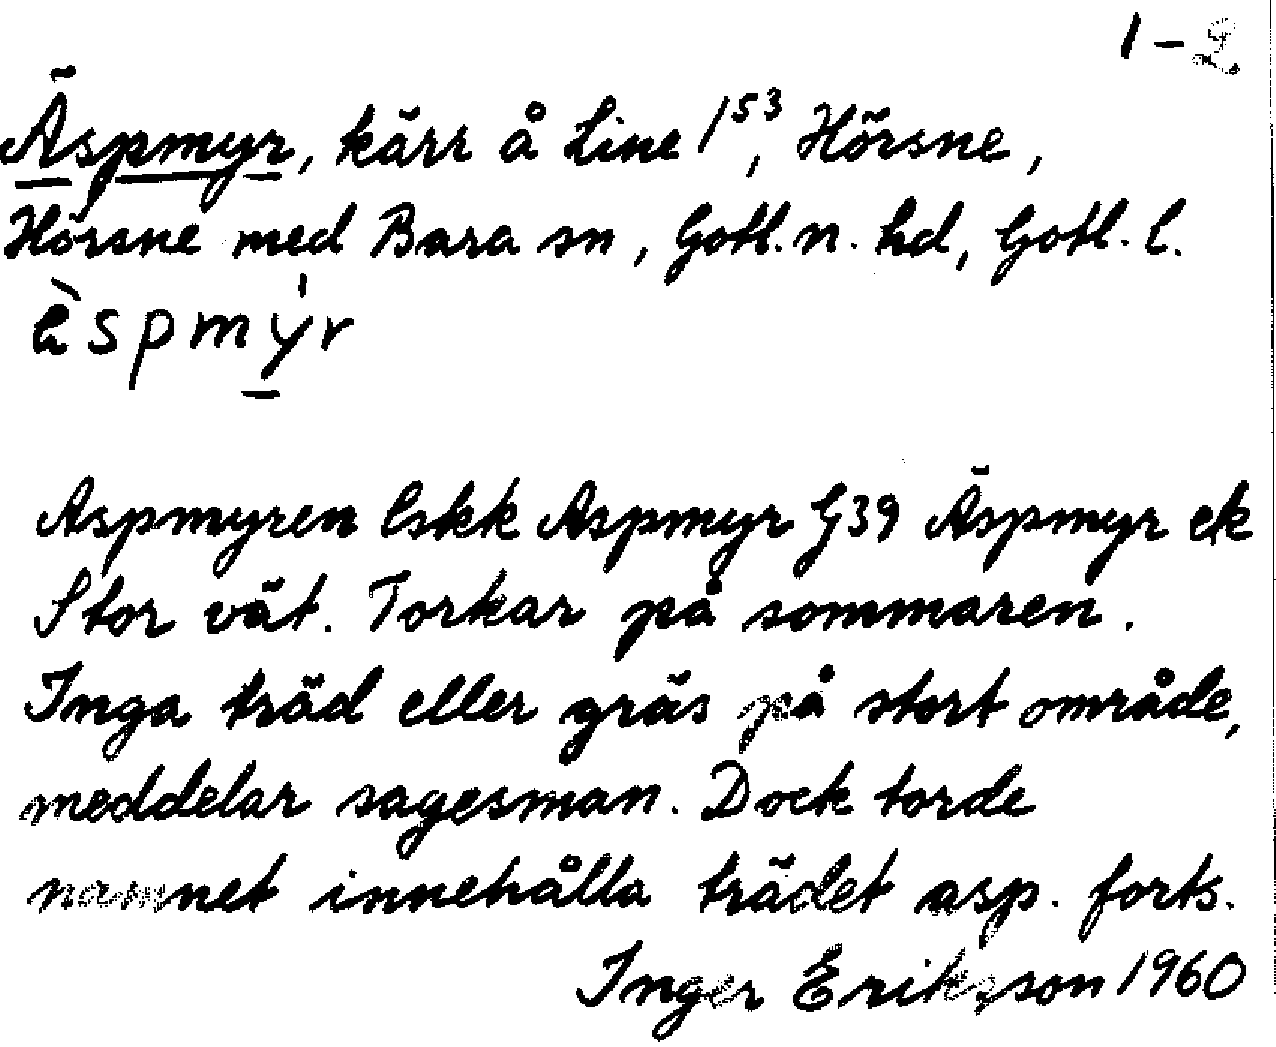 1-2
Äspmyr, kärr å Line 1⁵³, Hörsne,
Hörsne med Bara sn, Gotl. n. hd, Gotl. l.
ὲspmýr
Aspmyren Eskk Aspmyr G39 Äspmyr ek
Stor vät. Torkar på sommaren.
Inga träd eller gräs på stort område,
meddelar sagesman. Dock torde
namnet innehålla trädet asp. forts.
Inger Eriksson 1960